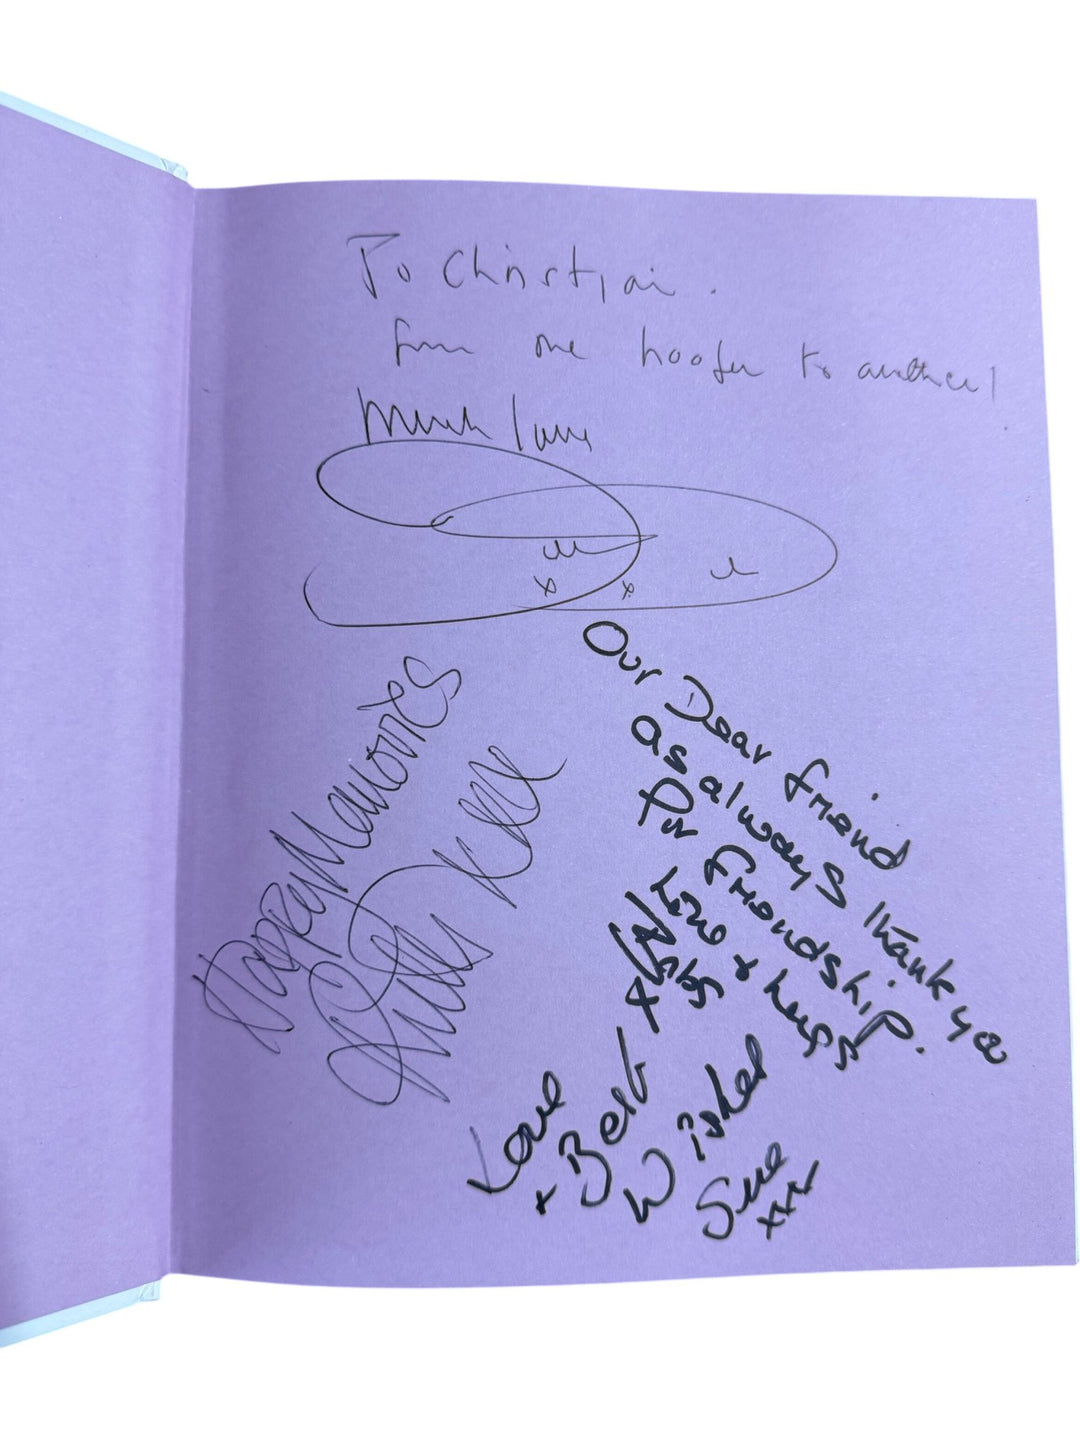 To Christian.
from one hoofer to another!
Much love
x x
Happy Memories
Our Dear friend
as always thank you
for friendship.
Love + hugs
x
Love
+ Best
Wishes
Sue
xxx